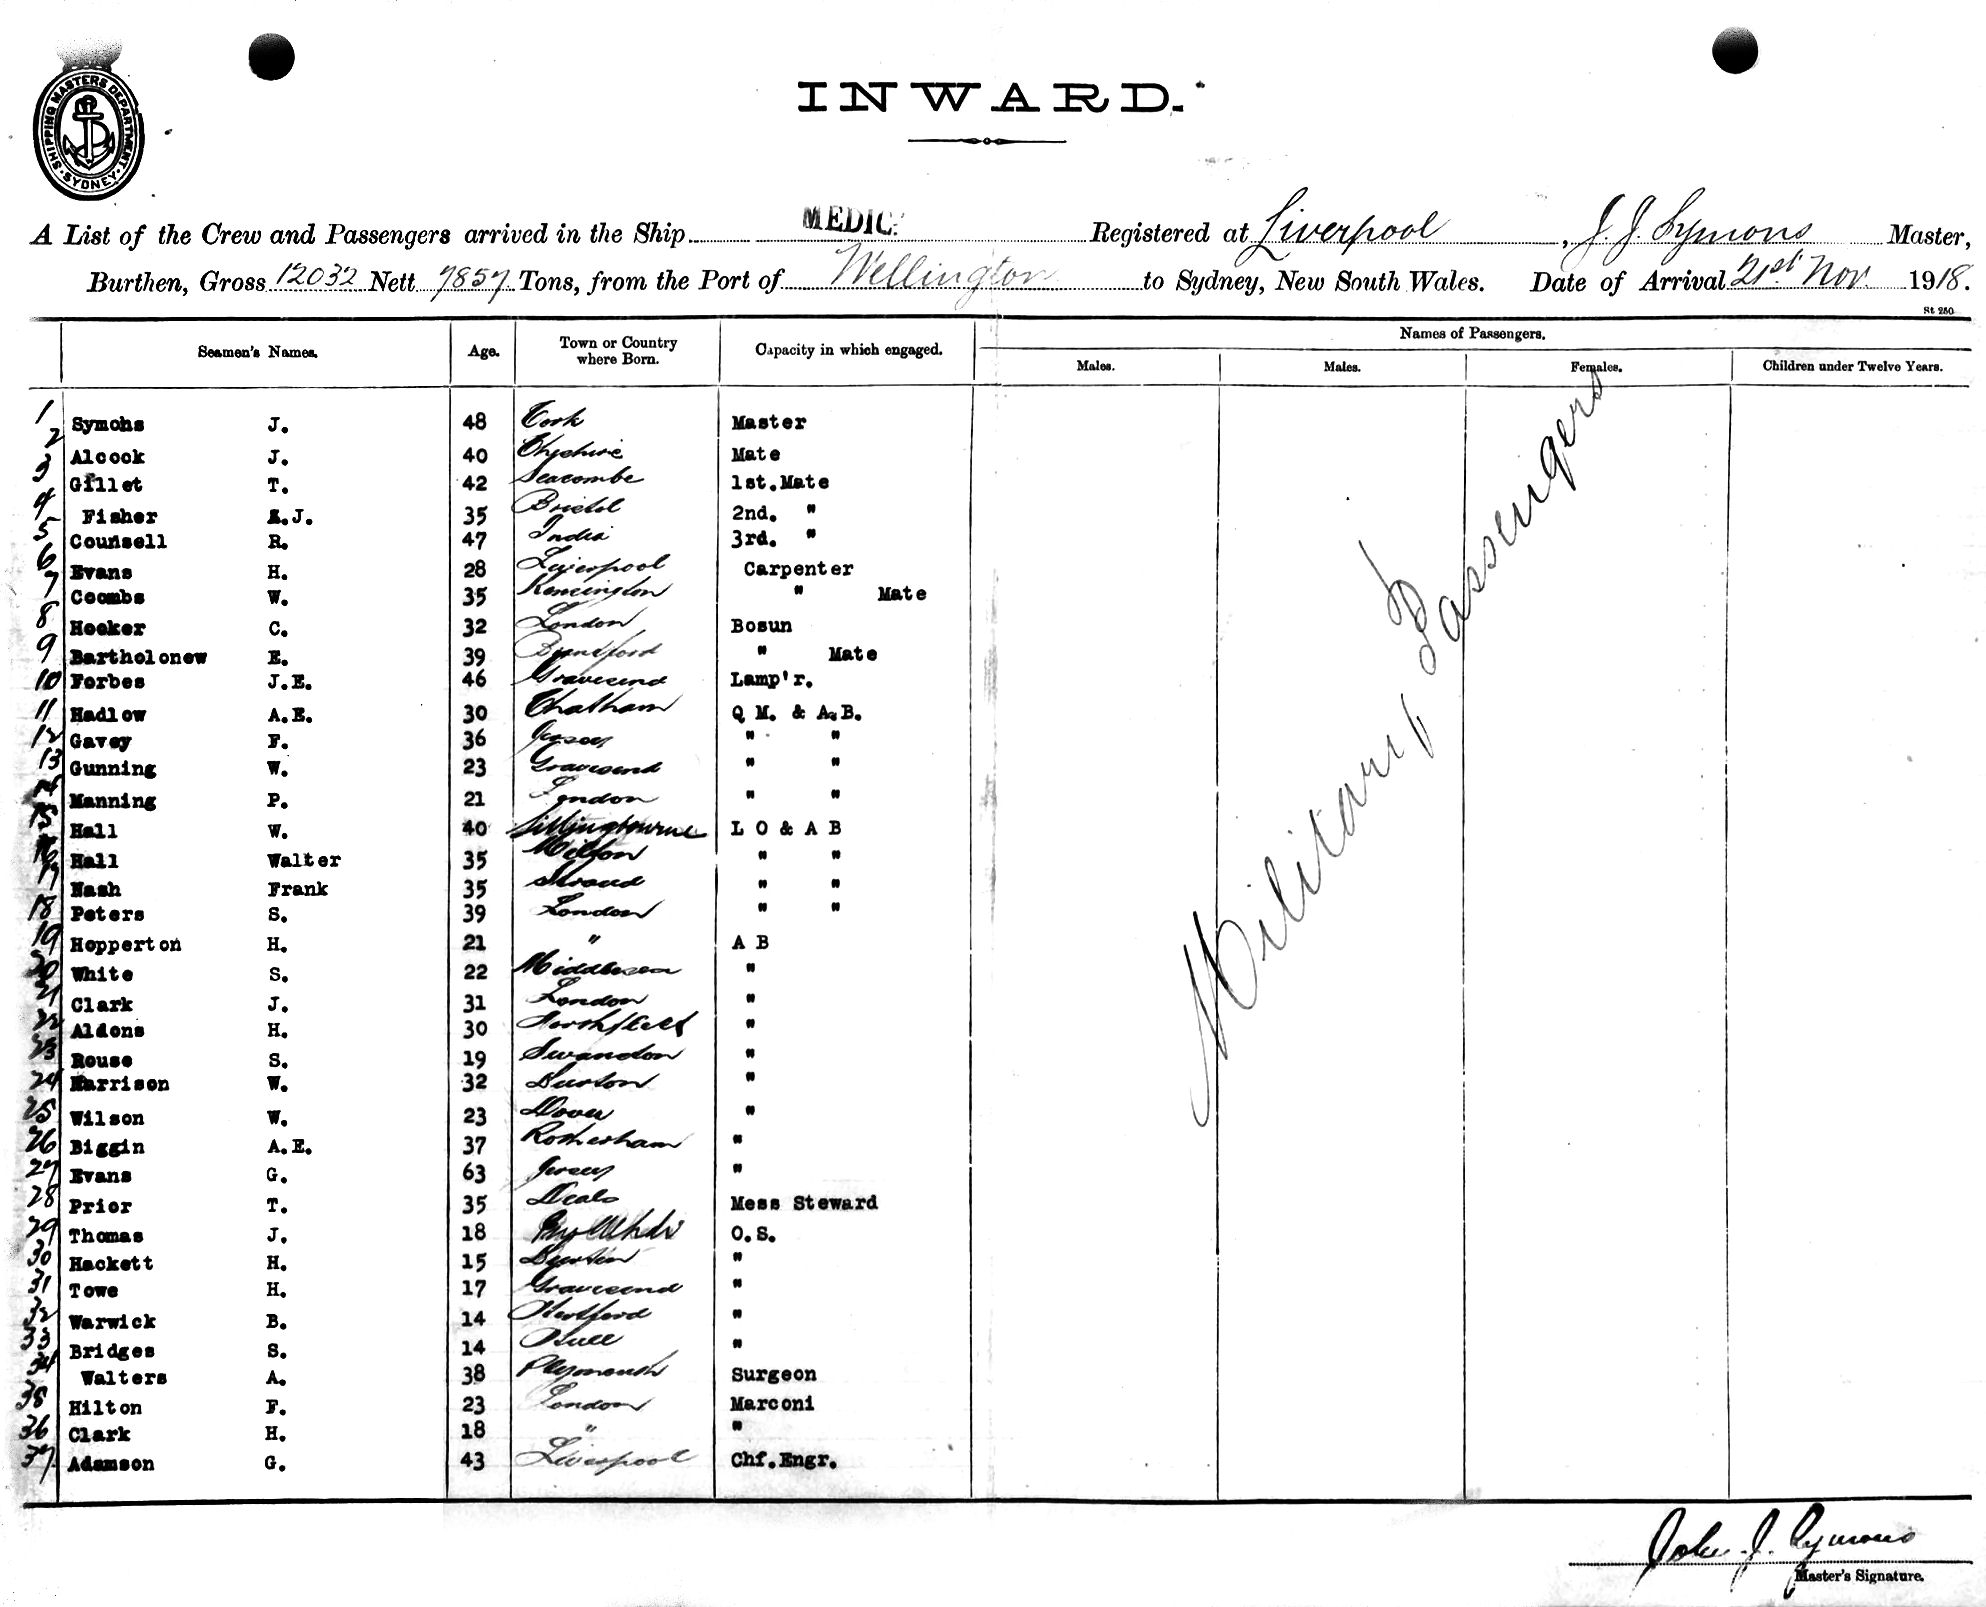 SHIPPING MASTERS DEPARTMENT
SYDNEY
INWARD.
A List of the Crew and Passengers arrived in the Ship MEDIC. Registered at Liverpool, J. J. Symons Master,
Burthen, Gross 12032 Nett 7857 Tons, from the Port of Wellington to Sydney, New South Wales. Date of Arrival 21st Nov. 1918.
St 250
Seamen's Names. Age. Town or Country where Born. Capacity in which engaged. Names of Passengers.
Males. Males. Females. Children under Twelve Years.
1 Symons J. 48 Cork Master
2 Alcock J. 40 Cheshire Mate
3 Gillet T. 42 Seacombe 1st.Mate
4 Fisher A.J. 35 Bristol 2nd. "
5 Counsell R. 47 India 3rd. "
6 Evans H. 28 Liverpool Carpenter
7 Coombs W. 35 Kensington " Mate
8 Hooker C. 32 London Bosun
9 Bartholonew E. 39 " Mate
10 Forbes J.E. 46 Gravesend Lamp'r.
11 Hadlow A.E. 30 Chatham Q M. & A.B.
12 Gavey F. 36 Jersey " "
13 Gunning W. 23 Gravesend " "
14 Manning P. 21 London " "
15 Hall W. 40 Sittingbourne L O & A B
16 Hall Walter 35 Milton " "
17 Nash Frank 35 Strood " "
18 Peters S. 39 London " "
19 Hopperton H. 21 " A B
20 White S. 22 Middlesex "
21 Clark J. 31 London "
22 Aldons H. 30 Northfleet "
23 Rouse S. 19 Swandon "
24 Harrison W. 32 Burton "
25 Wilson W. 23 Dover "
26 Biggin A.E. 37 Rotherham "
27 Evans G. 63 Jersey "
28 Prior T. 35 Deal Mess Steward
29 Thomas J. 18 O.S.
30 Hackett H. 15 "
31 Towe H. 17 Gravesend "
32 Warwick B. 14 Hertford "
33 Bridges S. 14 Hull "
34 Walters A. 38 Plymouth Surgeon
35 Hilton F. 23 London Marconi
36 Clark H. 18 " "
37 Adamson G. 43 Liverpool Chf.Engr.
Military Passengers
John. J. Symons
Master's Signature.